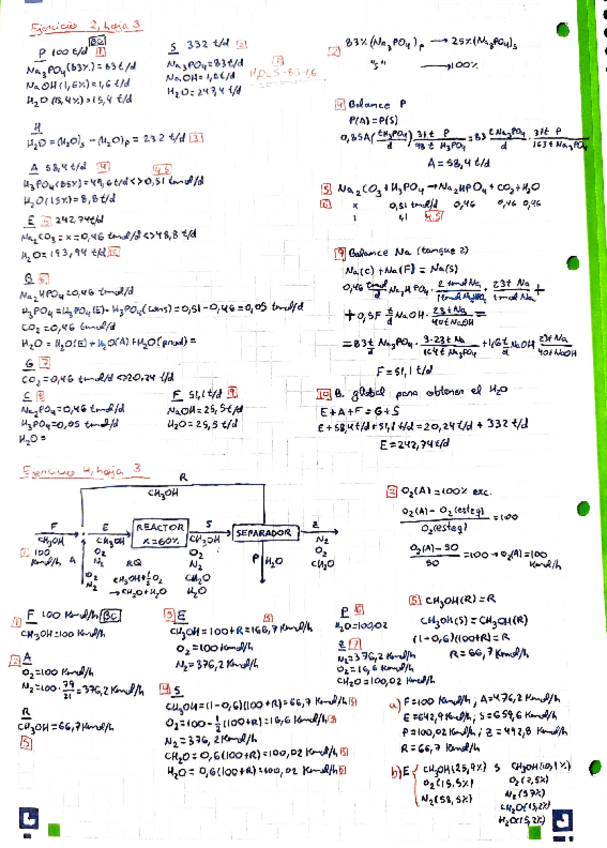 Ejercicio 2, hoja 3
P 100 t/d BC 1
Na3PO4(83%)=83 t/d
NaOH(1,6%)=1,6 t/d
H2O(15,4%)=15,4 t/d
S 332 t/d 2
Na3PO4=83 t/d
NaOH=1,6 t/d
H2O=247,4 t/d
H2O=S-83-1,6
2 83% (Na3PO4)P → 25% (Na3PO4)S
"S" → 100%
H
H2O=(H2O)S-(H2O)P=232 t/d 3
4 Balance P
P(A)=P(S)
0,85A (t H3PO4/d) · 31t P/98t H3PO4 = 83 t Na3PO4/d · 31t P/163t Na3PO4
A=58,4 t/d
A 58,4 t/d 4
H3PO4(85%)=49,6 t/d <> 0,51 tmol/d
H2O(15%)=8,8 t/d
5 Na2CO3+H3PO4→Na2HPO4+CO2+H2O
6 x 0,51 tmol/d 0,46 0,46 0,46
1 1,1
E 5 242,74 t/d
Na2CO3=x=0,46 tmol/d <> 48,8 t/d
H2O=193,94 t/d 10
9 Balance Na (tanque 2)
Na(C)+Na(F)=Na(S)
0,46 tmol/d Na2HPO4 · 2 tmol Na/1 tmol Na2HPO4 · 23t Na/1 tmol Na +
+0,5F t/d NaOH · 23t Na/40t NaOH =
=83 t/d Na3PO4 · 3·23t Na/164t Na3PO4 + 1,6 t/d NaOH 23t Na/40t NaOH
F=51,1 t/d
B 6
Na2HPO4=0,46 tmol/d
H3PO4=H3PO4(E)-H3PO4(cons)=0,51-0,46=0,05 tmol/d
CO2=0,46 tmol/d
H2O=H2O(E)+H2O(A)+H2O(prod)=
G 7
CO2=0,46 tmol/d <> 20,24 t/d
C 8
Na2PO4=0,46 tmol/d
H3PO4=0,05 tmol/d
H2O=
F 51,1 t/d 9
NaOH=25,5 t/d
H2O=25,5 t/d
10 B. global para obtener el H2O
E+A+F=G+S
E+58,4 t/d+51,1 t/d=20,24 t/d+332 t/d
E=242,74 t/d
Ejercicio 4, hoja 3
R
CH3OH
F
CH3OH
100 Kmol/h
A
O2
N2
E
CH3OH
O2
N2
REACTOR
X=60%
RQ
CH3OH+½O2
→CH2O+H2O
S
CH3OH
O2
N2
CH2O
H2O
SEPARADOR
P H2O
Z
N2
O2
CH2O
3 O2(A)=100% exc.
O2(A)-O2(esteq)/O2(esteq) =100
O2(A)-50/50 =100→O2(A)=100 Kmol/h
1 F 100 Kmol/h BC
CH3OH=100 Kmol/h
2 A
O2=100 Kmol/h
N2=100·79/21=376,2 Kmol/h
R
CH3OH=66,7 Kmol/h
5
3 E
CH3OH=100+R=166,7 Kmol/h
O2=100 Kmol/h
N2=376,2 Kmol/h
4 S
CH3OH=(1-0,6)(100+R)=66,7 Kmol/h 5
O2=100-½(100+R)=16,6 Kmol/h
N2=376,2 Kmol/h
CH2O=0,6(100+R)=100,02 Kmol/h 5
H2O=0,6(100+R)=100,02 Kmol/h 5
P 6
H2O=100,02
Z 7
N2=376,2 Kmol/h
O2=16,6 Kmol/h
CH2O=100,02 Kmol/h
5 CH3OH(R)=R
CH3OH(S)=CH3OH(R)
(1-0,6)(100+R)=R
R=66,7 Kmol/h
a) F=100 Kmol/h; A=476,2 Kmol/h
E=642,9 Kmol/h; S=659,6 Kmol/h
P=100,02 Kmol/h; Z=492,8 Kmol/h
R=66,7 Kmol/h
b) E CH3OH(25,9%) S CH3OH(10,1%)
O2(15,5%) O2(2,5%)
N2(58,5%) N2(57%)
CH2O(15,2%)
H2O(15,2%)